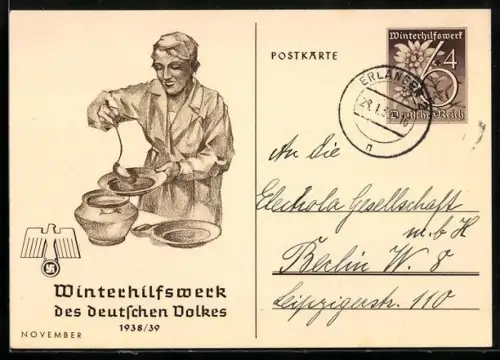 POSTKARTE
Winterhilfswerk
6+4
Deutsches Reich
ERLANGEN
n
An die
Electrola Gesellschaft
m. b H
Berlin W. 8
Leipzigerstr. 110
Winterhilfswerk
des deutschen Volkes
1938/39
NOVEMBER